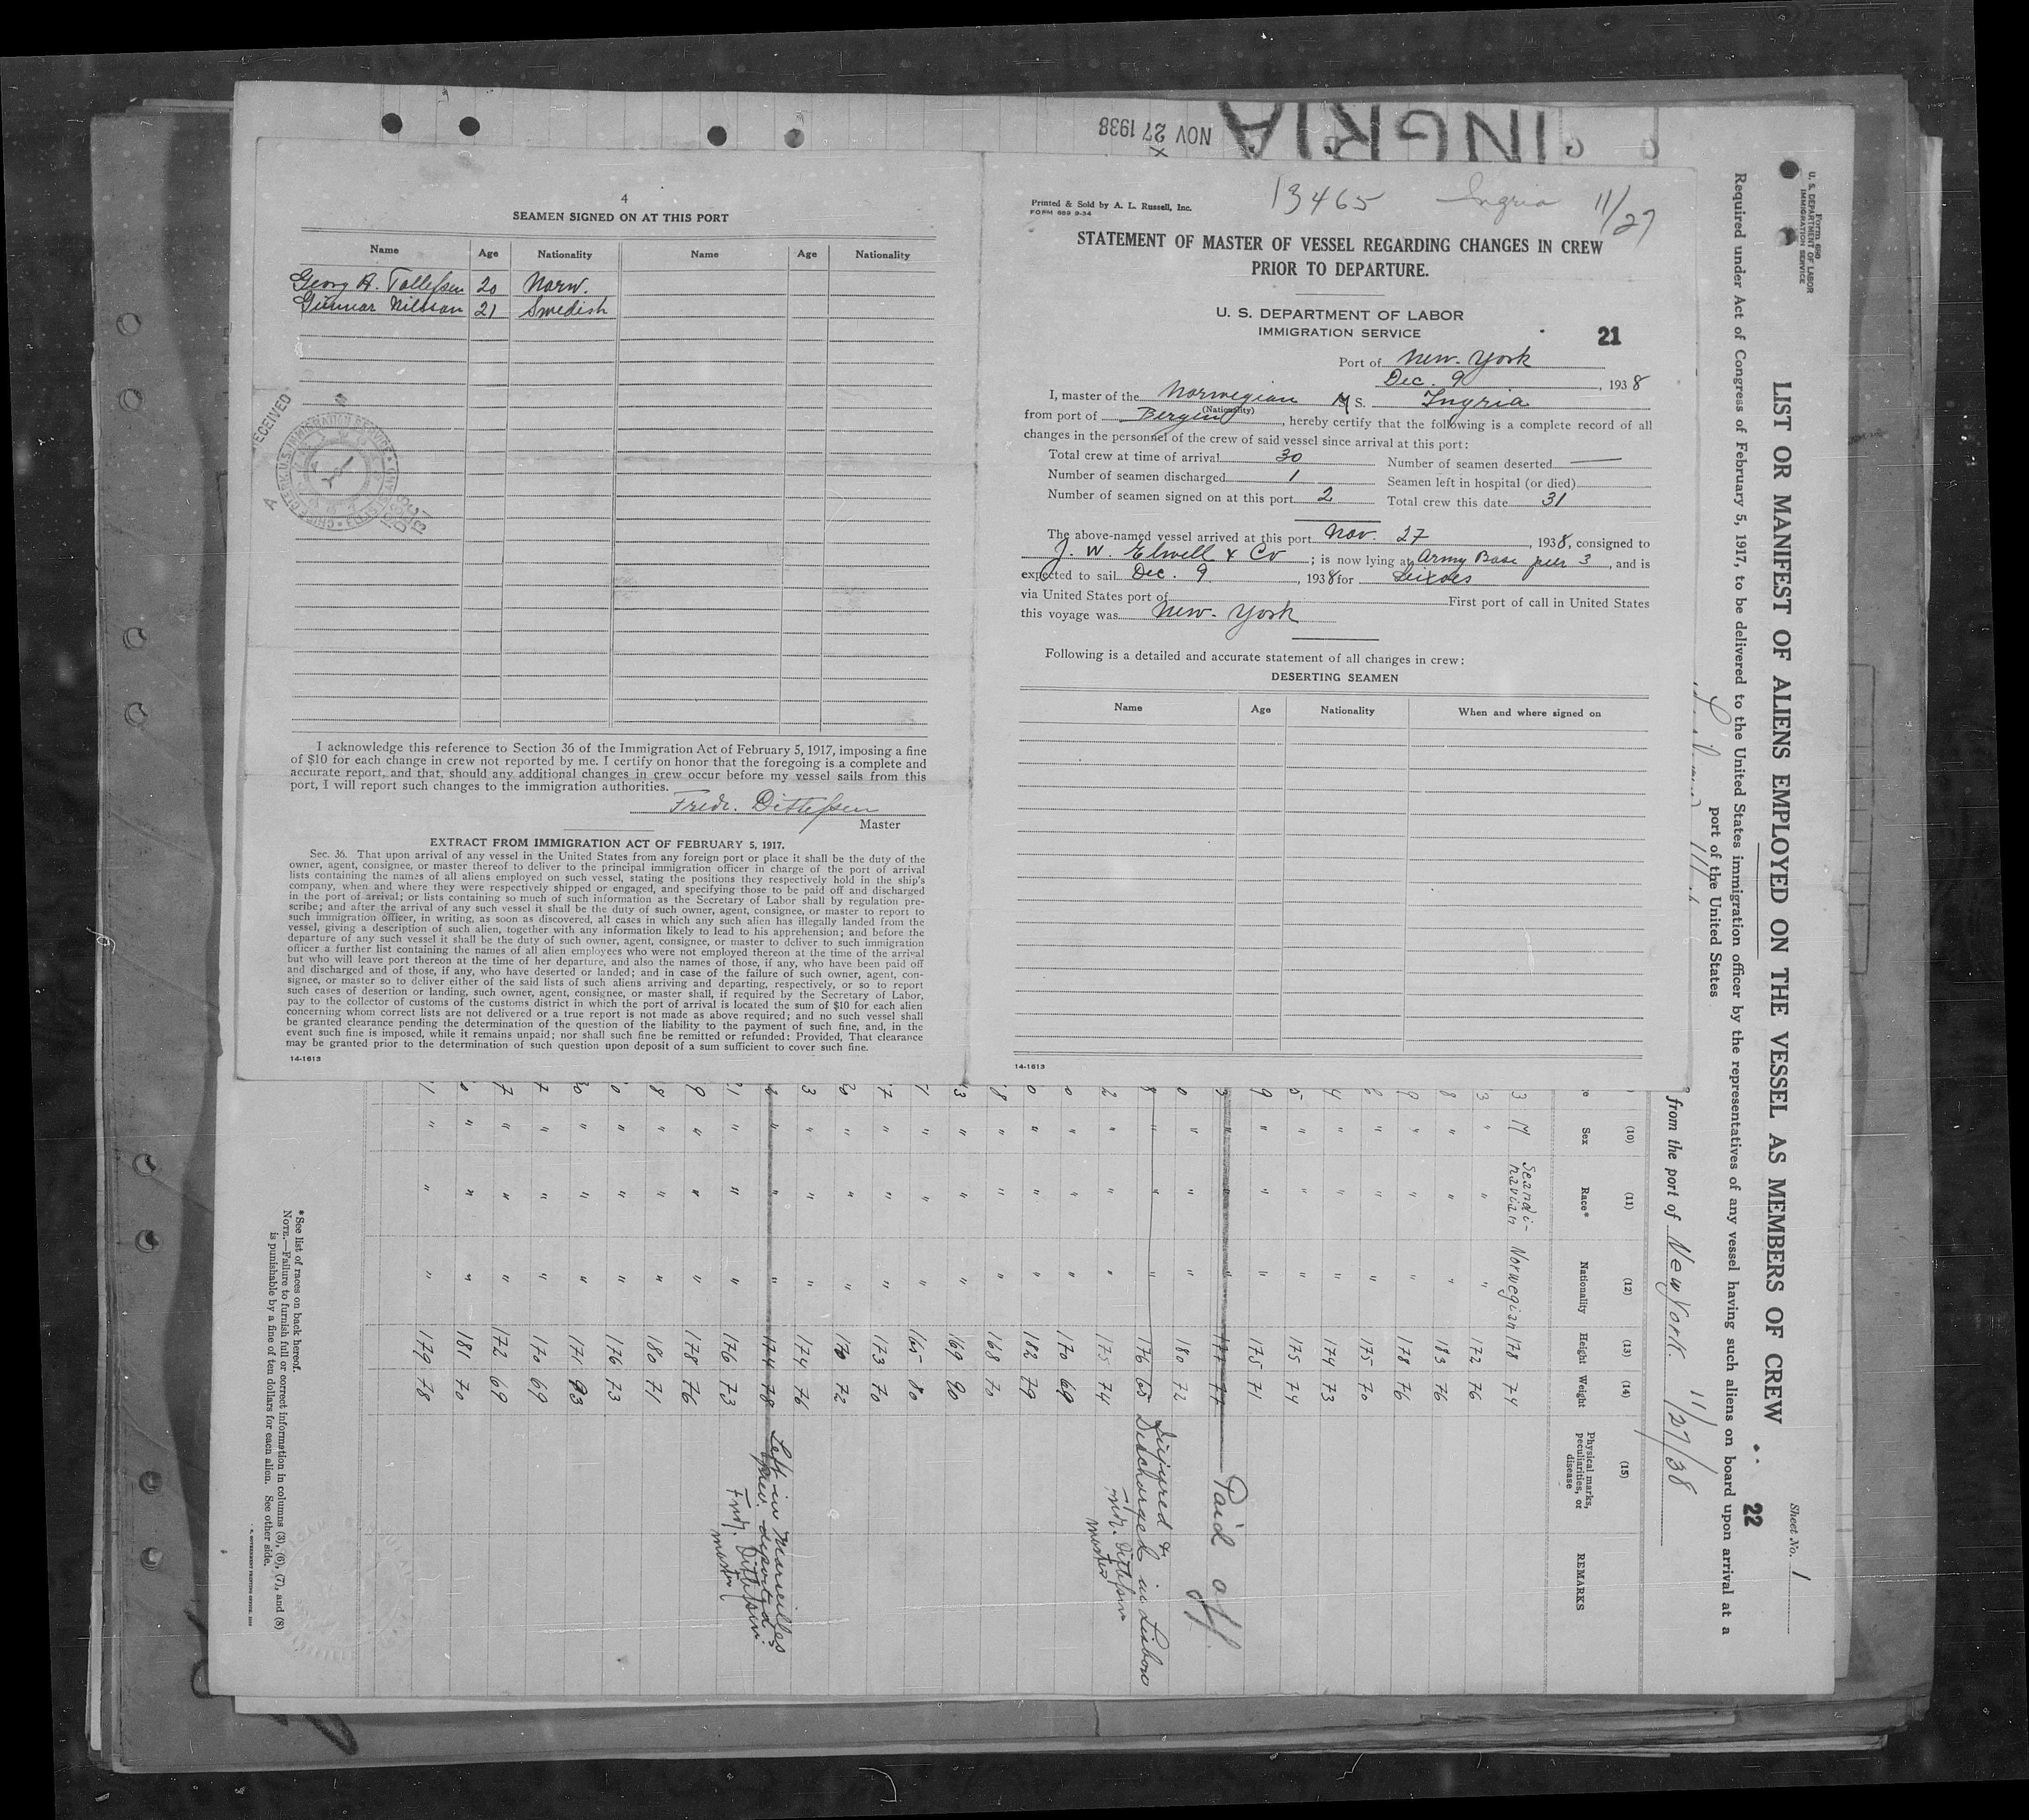 INGRIA
NOV 27 1938
4
SEAMEN SIGNED ON AT THIS PORT
Name Age Nationality Name Age Nationality
Georg A. Tollefsen 20 Norw.
Gunnar Nilsson 21 Swedish
RECEIVED
I acknowledge this reference to Section 36 of the Immigration Act of February 5, 1917, imposing a fine
of $10 for each change in crew not reported by me. I certify on honor that the foregoing is a complete and
accurate report, and that, should any additional changes in crew occur before my vessel sails from this
port, I will report such changes to the immigration authorities.
Fredr. Ditlefsen
Master
EXTRACT FROM IMMIGRATION ACT OF FEBRUARY 5, 1917.
Sec. 36. That upon arrival of any vessel in the United States from any foreign port or place it shall be the duty of the
owner, agent, consignee, or master thereof to deliver to the principal immigration officer in charge of the port of arrival
lists containing the names of all aliens employed on such vessel, stating the positions they respectively hold in the ship's
company, when and where they were respectively shipped or engaged, and specifying those to be paid off and discharged
in the port of arrival; or lists containing so much of such information as the Secretary of Labor shall by regulation pre-
scribe; and after the arrival of any such vessel it shall be the duty of such owner, agent, consignee, or master to report to
such immigration officer, in writing, as soon as discovered, all cases in which any such alien has illegally landed from the
vessel, giving a description of such alien, together with any information likely to lead to his apprehension; and before the
departure of any such vessel it shall be the duty of such owner, agent, consignee, or master to deliver to such immigration
officer a further list containing the names of all alien employees who were not employed thereon at the time of the arrival
but who will leave port thereon at the time of her departure, and also the names of those, if any, who have been paid off
and discharged and of those, if any, who have deserted or landed; and in case of the failure of such owner, agent, con-
signee, or master so to deliver either of the said lists of such aliens arriving and departing, respectively, or so to report
such cases of desertion or landing, such owner, agent, consignee, or master shall, if required by the Secretary of Labor,
pay to the collector of customs of the customs district in which the port of arrival is located the sum of $10 for each alien
concerning whom correct lists are not delivered or a true report is not made as above required; and no such vessel shall
be granted clearance pending the determination of the question of the liability to the payment of such fine, and, in the
event such fine is imposed, while it remains unpaid; nor shall such fine be remitted or refunded: Provided, That clearance
may be granted prior to the determination of such question upon deposit of a sum sufficient to cover such fine.
14-1613
13465 Ingria 11/27
Printed & Sold by A. L. Russell, Inc.
FORM 689 9-34
STATEMENT OF MASTER OF VESSEL REGARDING CHANGES IN CREW
PRIOR TO DEPARTURE.
U. S. DEPARTMENT OF LABOR
IMMIGRATION SERVICE
21
Port of New-York
Dec. 9, 1938
I, master of the Norwegian M S. Ingria
(Nationality)
from port of Bergen, hereby certify that the following is a complete record of all
changes in the personnel of the crew of said vessel since arrival at this port:
Total crew at time of arrival 30 Number of seamen deserted —
Number of seamen discharged 1 Seamen left in hospital (or died)
Number of seamen signed on at this port 2 Total crew this date 31
The above-named vessel arrived at this port Nov. 27, 1938, consigned to
J. W. Elwell & Co; is now lying at Army Base pier 3, and is
expected to sail Dec. 9, 1938 for Leixoes
via United States port of First port of call in United States
this voyage was New-York
Following is a detailed and accurate statement of all changes in crew:
DESERTING SEAMEN
Name Age Nationality When and where signed on
14-1613
Form 680
U. S. DEPARTMENT OF LABOR
IMMIGRATION SERVICE
Sheet No. 1
LIST OR MANIFEST OF ALIENS EMPLOYED ON THE VESSEL AS MEMBERS OF CREW
22
Required under Act of Congress of February 5, 1917, to be delivered to the United States immigration officer by the representatives of any vessel having such aliens on board upon arrival at a
port of the United States
from the port of New York. 11/27/38
(10) (11) (12) (13) (14) (15)
Sex Race* Nationality Height Weight Physical marks, peculiarities, or disease REMARKS
3 M Scandi-navian Norwegian 178 74
3 " " " 172 76
8 " " " 183 76
9 " " " 178 76
" " " 175 70
4 " " " 174 73
5 " " " 175 74
9 " " " 175 71
3 " " " 177 77 Paid off.
0 " " " 180 72
8 " " " 176 65 Injured & Discharged in Lisboa
2 " " " 175 74 Fredr. Ditlefsen master
0 " " " 170 69
0 " " " 182 79
8 " " " 168 70
3 " " " 169 90
1 " " " 165 80
7 " " " 173 70
" " " 170 72
3 " " " 174 76
" " " 174 78 Left in Marseilles
21 " " " 176 73 Fredr. Ditlefsen master
9 " " " 178 76
8 " " " 180 71
0 " " " 176 73
30 " " " 171 83
7 " " " 170 69
7 " " " 172 69
" " " 181 70
1 " " " 179 78
*See list of races on back hereof.
NOTE.—Failure to furnish full or correct information in columns (3), (6), (7), and (8)
is punishable by a fine of ten dollars for each alien. See other side.